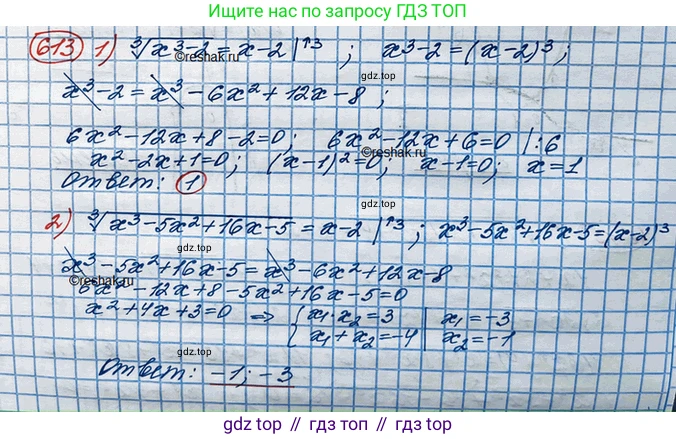 Ищите нас по запросу ГДЗ ТОП
613 1) ∛(x³-2) = x-2 |↑3 ; x³-2=(x-2)³;
©reshak.ru
gdz.top
x³-2=x³-6x²+12x-8;
6x²-12x+8-2=0; 6x²-12x+6=0 |:6
©reshak.ru
x²-2x+1=0; (x-1)²=0; x-1=0; x=1
Ответ: 1
gdz.top
2) ∛(x³-5x²+16x-5) = x-2 |↑3 ; x³-5x²+16x-5=(x-2)³
x³-5x²+16x-5=x³-6x²+12x-8
©reshak.ru
gdz.top
6x²-12x+8-5x²+16x-5=0
x²+4x+3=0 ⇒ { x₁·x₂=3 | x₁=-3
x₁+x₂=-4 | x₂=-1
gdz.top
Ответ: -1; -3
gdz.top // гдз.топ // gdz.top